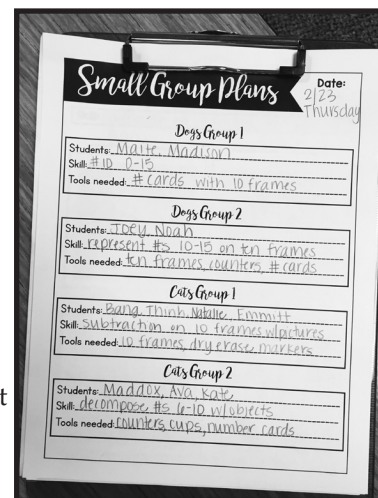 Small Group Plans
Date:
2/23
Thursday
Dogs Group 1
Students: Maite, Madison
Skill: #ID 0-15
Tools needed: # cards with 10 frames
Dogs Group 2
Students: Joey, Noah
Skill: represent #s 10-15 on ten frames
Tools needed: ten frames, counters, # cards
Cats Group 1
Students: Bang, Thinh, Natalie, Emmitt
Skill: subtraction on 10 frames w/pictures
Tools needed: 10 frames, dry erase markers
Cats Group 2
Students: Maddox, Ava, Kate
Skill: decompose #s 6-10 w/objects
Tools needed: counters, cups, number cards